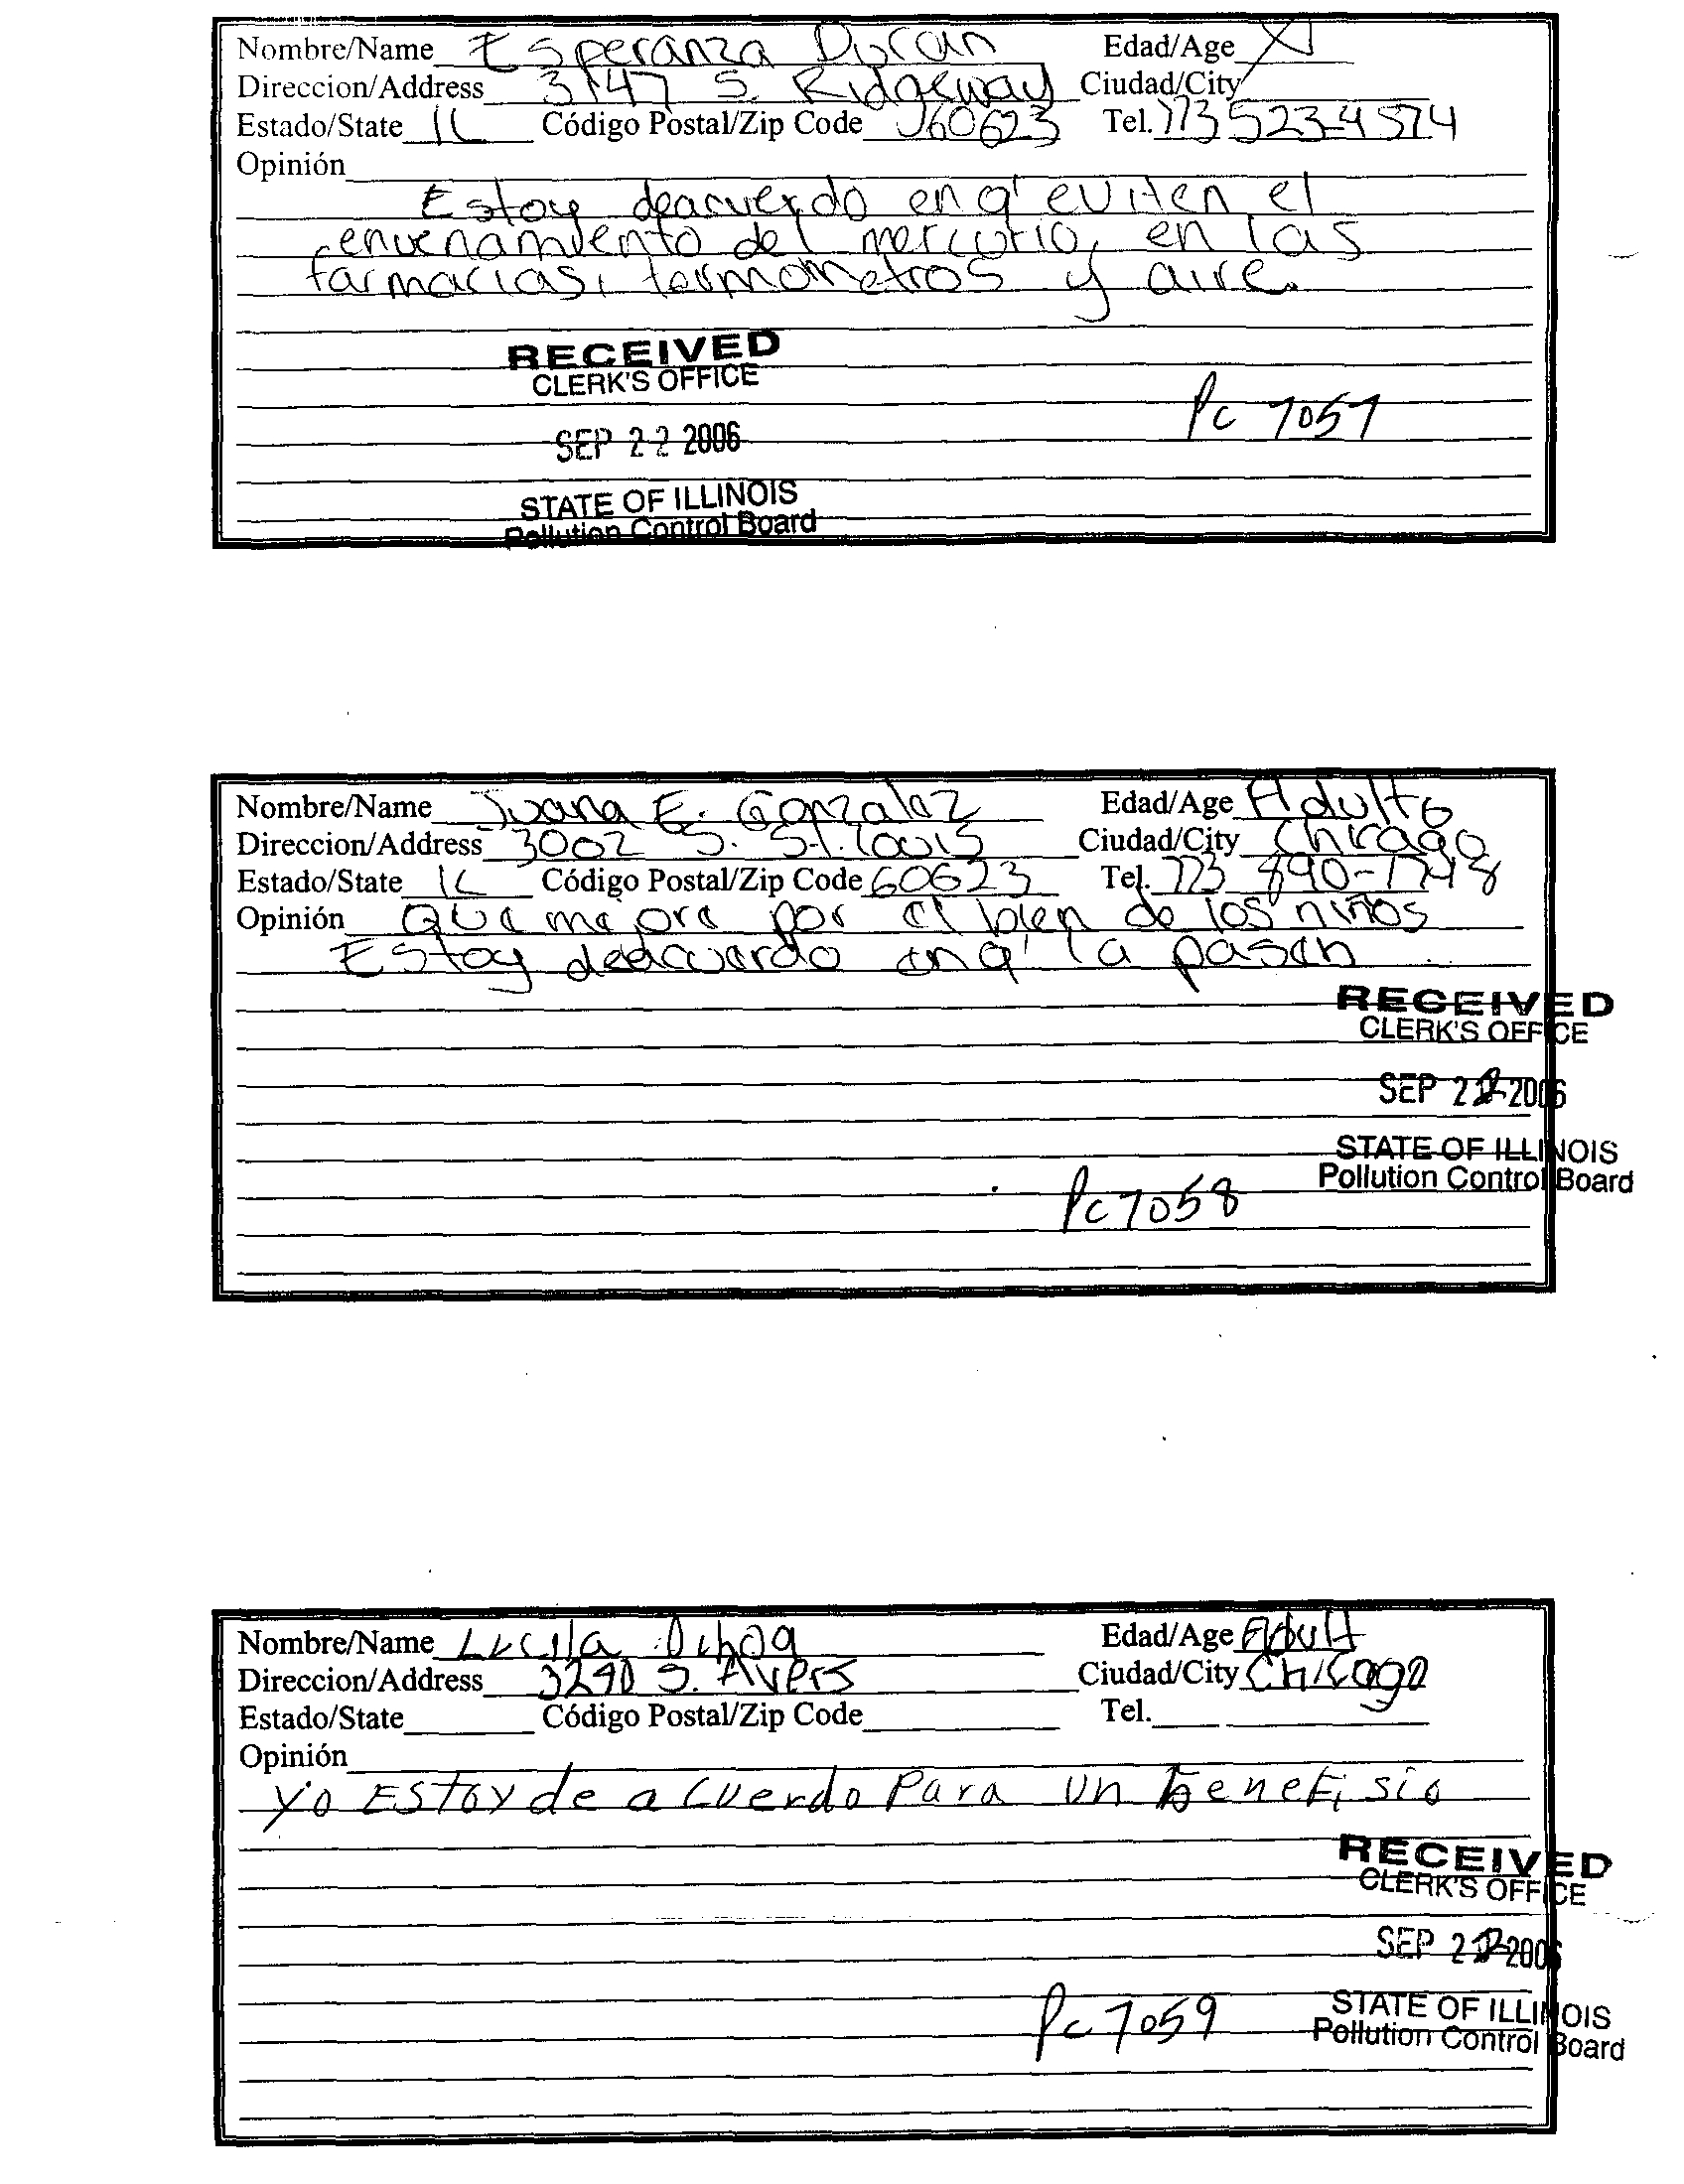 Nombre/Name Esperanza Duran Edad/Age
Direccion/Address 3147 S. Ridgeway Ciudad/City
Estado/State IL Código Postal/Zip Code 60623 Tel. 773 523-4574
Opinión
Estoy deacuerdo en q' eviten el
envenamiento del mercurio, en las
farmacias, termometros y aire.
RECEIVED
CLERK'S OFFICE
Pc 7057
SEP 22 2006
STATE OF ILLINOIS
Pollution Control Board
Nombre/Name Juana E. Gonzalez Edad/Age Adulto
Direccion/Address 3002 S. St. Louis Ciudad/City Chicago
Estado/State IL Código Postal/Zip Code 60623 Tel. 773 890-1748
Opinión Que mejore por el bien de los niños
Estoy deacuerdo en q' la pasen
RECEIVED
CLERK'S OFFICE
SEP 22 2006
STATE OF ILLINOIS
Pollution Control Board
Pc 7058
Nombre/Name Lucila Ochoa Edad/Age Adult
Direccion/Address 3290 S. Avers Ciudad/City Chicago
Estado/State Código Postal/Zip Code Tel.
Opinión
Yo EStoy de a cuerdo Para un benefisio
RECEIVED
CLERK'S OFFICE
SEP 22 2006
STATE OF ILLINOIS
Pollution Control Board
Pc 7059